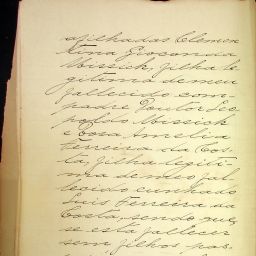 afilhadas Clemen
tina Gioconda
Wissick, filha le
gitima de meu
fallecido com-
padre Doutor Leo
poldo Wissick
e Rosa Amelia
Ferreira da Cos-
ta, filha legiti-
ma de meo fal
lecido cunhado
Luis Ferreira da
Costa, sendo que,
se esta fallecer
sem filhos pas-